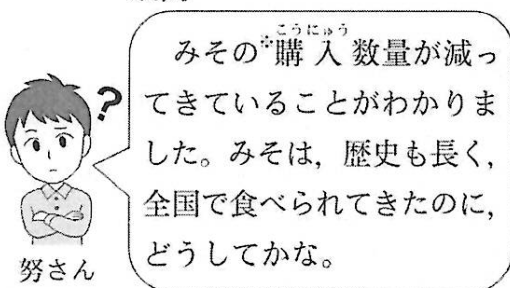 みその※購入数量が減っ
てきていることがわかりま
した。みそは，歴史も長く，
全国で食べられてきたのに，
どうしてかな。
?
努さん